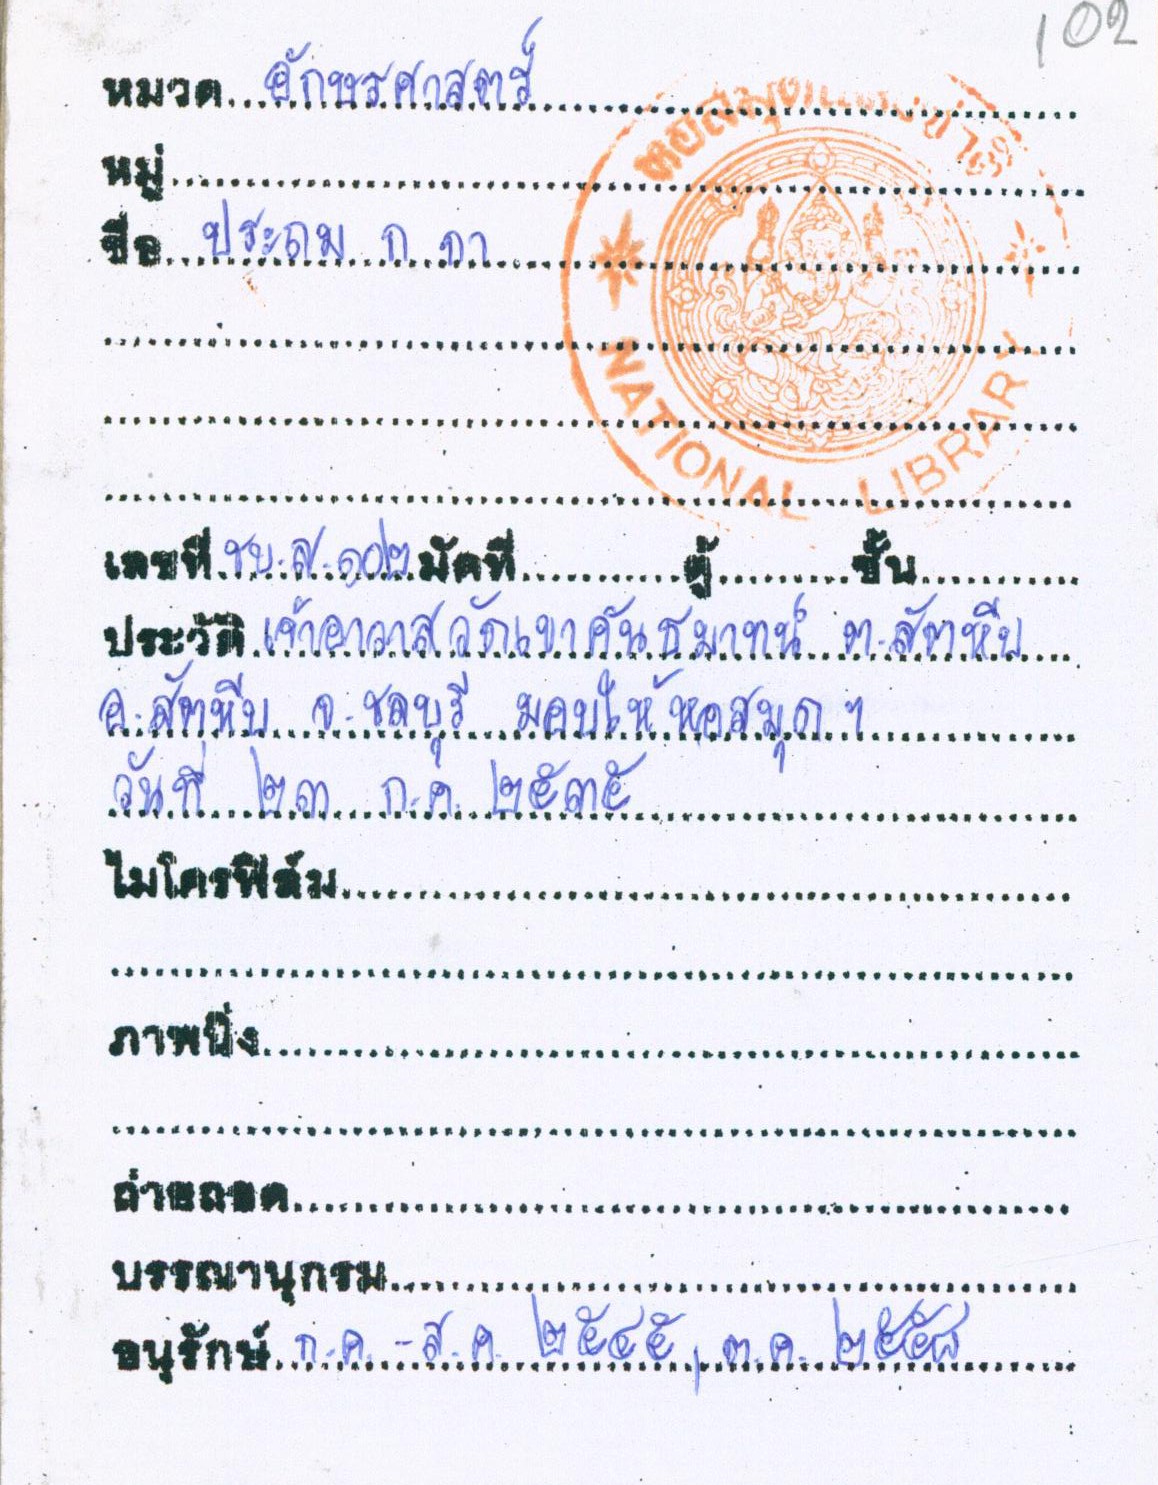 102
หมวด อักษรศาสตร์
หมู่
ชื่อ ประถม ก กา
หอสมุดแห่งชาติ
NATIONAL LIBRARY
เลขที่ ชบ.ส.๑๐๒ มัดที่ ตู้ ชั้น
ประวัติ เจ้าอาวาสวัดเขาคันธมาทน์ ต.สัตหีบ
อ.สัตหีบ จ.ชลบุรี มอบให้หอสมุด ฯ
วันที่ ๒๓ ก.ค. ๒๕๓๕
ไมโครฟิล์ม
ภาพนิ่ง
ถ่ายถอด
บรรณานุกรม
อนุรักษ์ ก.ค. - ส.ค. ๒๕๔๕, ต.ค. ๒๕๕๘